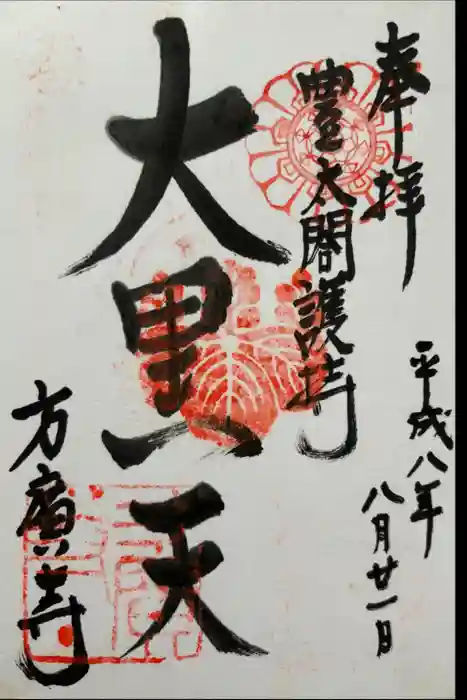 奉拝
平成八年
八月廿一日
豊太閤護持
大黒天
方廣寺